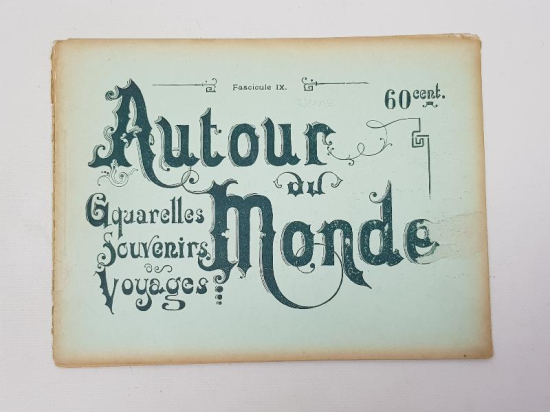 Fascicule IX.
60 cent.
Autour
du
Monde
Aquarelles
Souvenirs
de
Voyages